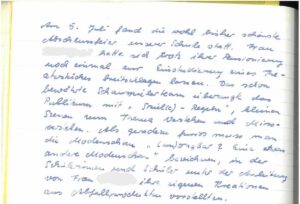 Am 5. Juli fand die wohl bisher schönste
Abschiedsfeier unserer Schule statt. Frau
hatte sich trotz ihrer Pensionierung
noch einmal zur Einstudierung eines The-
aterstückes breitschlagen lassen. Das schon
bewährte Schauspielerteam überzeugte das
Publikum mit " - Regeln", kleinen
Szenen zum Thema Verstehen und Missver-
stehen. Als geradezu furios muss man
die Modenschau " Eine etwas
andere Modenschau" bezeichnen, in der
Schülerinnen und Schüler unter der Anleitung
von Frau ihre eigenen Kreationen
aus Abfallprodukten vorstellten.